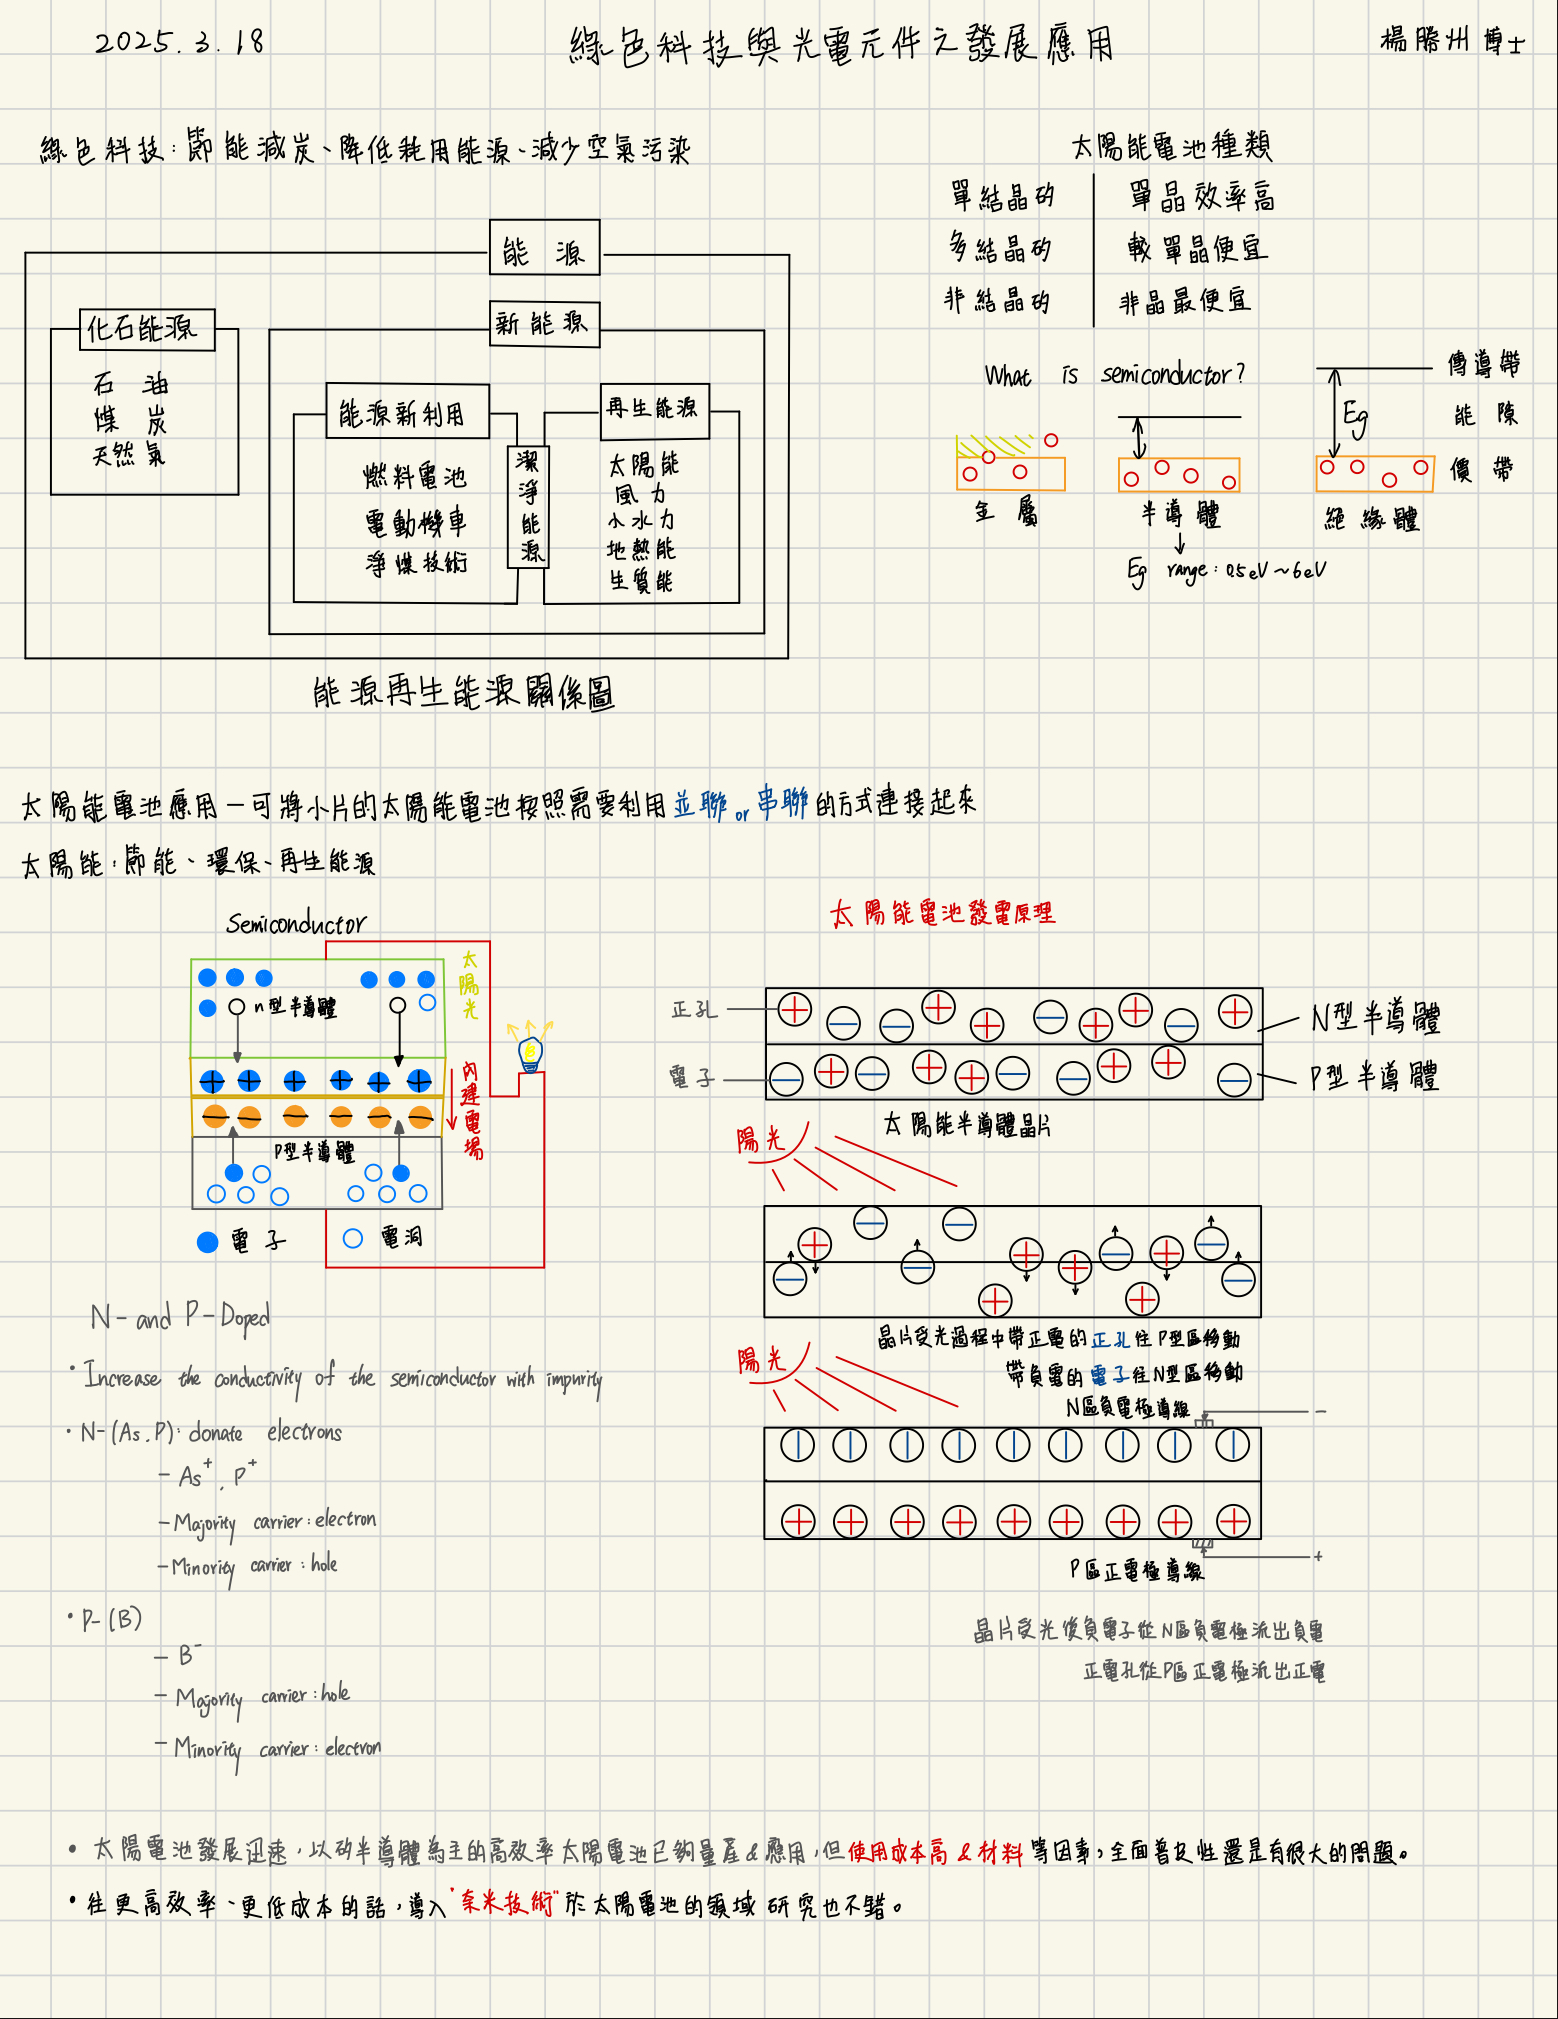 2025.3.18
綠色科技與光電元件之發展應用
楊勝州 博士
綠色科技：節能減炭、降低耗用能源、減少空氣污染
能 源
化石能源
石 油
煤 炭
天然氣
新能源
能源新利用
燃料電池
電動機車
淨煤技術
潔淨能源
再生能源
太陽能
風力
小水力
地熱能
生質能
能源再生能源關係圖
太陽能電池種類
單結晶矽 單晶效率高
多結晶矽 較單晶便宜
非結晶矽 非晶最便宜
What is semiconductor?
傳導帶
Eg 能隙
價帶
金屬 半導體 絕緣體
Eg range: 0.5eV~6eV
太陽能電池應用－可將小片的太陽能電池按照需要利用並聯or串聯的方式連接起來
太陽能：節能、環保、再生能源
Semiconductor
太陽光
n型半導體
內建電場
P型半導體
電子 電洞
N- and P-Doped
• Increase the conductivity of the semiconductor with impurity
• N-(As.P): donate electrons
- As⁺, P⁺
- Majority carrier: electron
- Minority carrier: hole
• P-(B)
- B⁻
- Majority carrier: hole
- Minority carrier: electron
太陽能電池發電原理
正孔 N型半導體
電子 P型半導體
太陽能半導體晶片
陽光
晶片受光過程中帶正電的正孔往P型區移動
帶負電的電子往N型區移動
陽光
N區負電極導線 －
P區正電極導線 +
晶片受光後負電子從N區負電極流出負電
正電孔從P區正電極流出正電
• 太陽電池發展迅速，以矽半導體為主的高效率太陽電池已夠量產&應用，但使用成本高&材料等因素，全面普及性還是有很大的問題。
• 往更高效率、更低成本的話，導入"奈米技術"於太陽電池的領域研究也不錯。